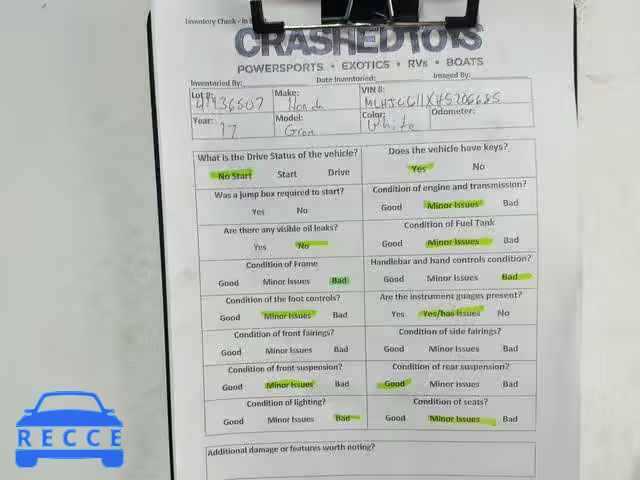 Inventory Check - In
CRASHEDTOYS
POWERSPORTS • EXOTICS • RVs • BOATS
Inventoried By: Date Inventoried: Imaged By:
Lot #: 41936507 Make: Honda VIN #: MLHJC611XH5206685
Year: 17 Model: Grom Color: White Odometer:
What is the Drive Status of the vehicle? Does the vehicle have keys?
No Start Start Drive Yes No
Was a jump box required to start? Condition of engine and transmission?
Yes No Good Minor Issues Bad
Are there any visible oil leaks? Condition of Fuel Tank
Yes No Good Minor Issues Bad
Condition of Frame Handlebar and hand controls condition?
Good Minor Issues Bad Good Minor Issues Bad
Condition of the foot controls? Are the instrument guages present?
Good Minor Issues Bad Yes Yes/has Issues No
Condition of front fairings? Condition of side fairings?
Good Minor Issues Bad Good Minor Issues Bad
Condition of front suspension? Condition of rear suspension?
Good Minor Issues Bad Good Minor Issues Bad
Condition of lighting? Condition of seats?
Good Minor Issues Bad Good Minor Issues Bad
Additional damage or features worth noting?
RECCE